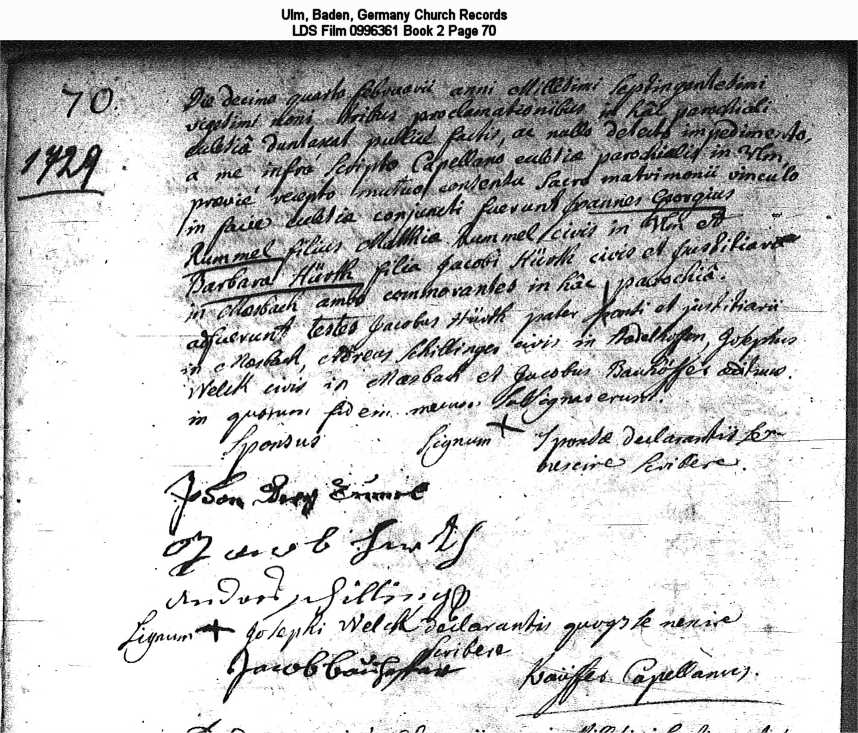 Ulm, Baden, Germany Church Records
LDS Film 0996361 Book 2 Page 70
70.
1729
Die decima quarta februarii anni Millesimi Septingentesimi
vigesimi noni tribus proclamationibus in hâc parochiali
ecclesiâ duntaxat publicè factis, ac nullo detecto impedimento,
a me infrà scripto Capellano ecclesiæ parochialis in Ulm,
præviè recepto mutuo consensu Sacro matrimonii vinculo
in facie ecclesiæ conjuncti fuerunt Joannes Georgius
Rummel filius Matthiæ Rummel civis in Ulm et
Barbara Hürth filia Jacobi Hürth civis et justitiarii
in Mosbach ambo commorantes in hâc parochiâ.
adfuerunt testes Jacobus Hürth pater et justitiarii
in Mosbach, Andreas Schillinger civis in Josephus
Welck civis in Mosbach et Jacobus
in quorum fidem mecum subsignaverunt.
Sponsus Signum + Sponsæ declarantis
scribere.
Johan
Jacob
Andres Schillinger
Signum + Josephi Welck declarantis quoque se nescire
scribere
Jacob
Capellanus.